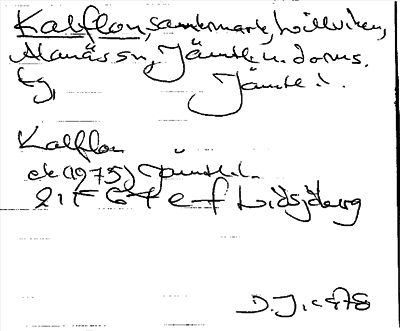 Kalflon, sandmark, Lillviken,
Alanäs sn, Jämtl. n. doms.
fg, Jämtl.
Kalflon
ek (1975) Jämtl.
21 F 6 f e f Lidsjöberg
D. J. 1978